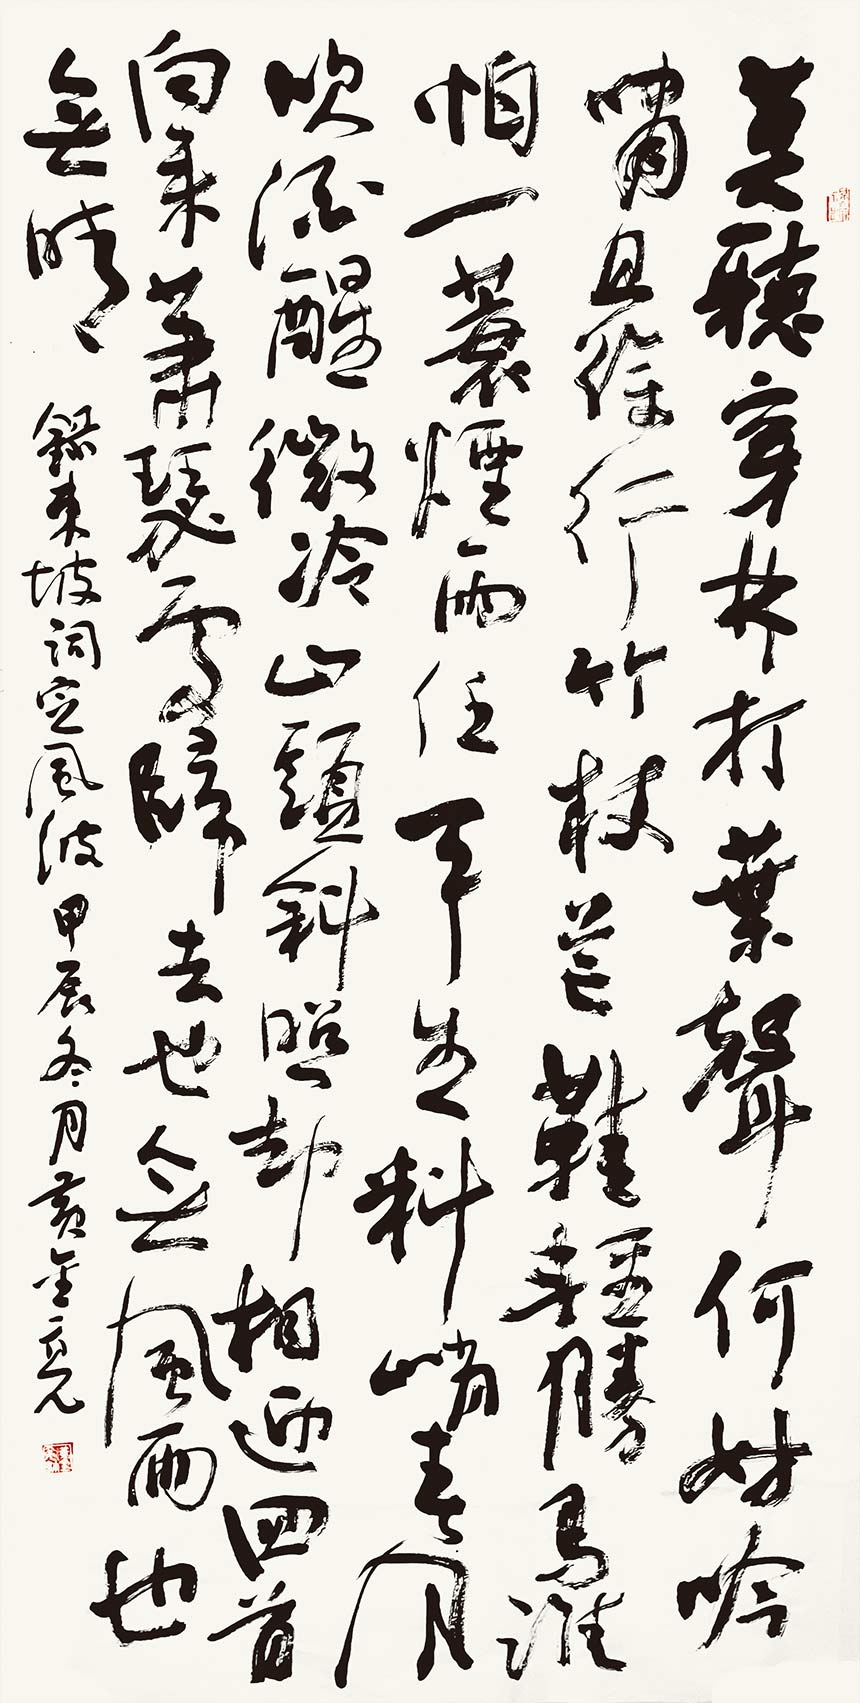 莫聽穿林打葉聲何妨吟
嘯且徐行竹杖芒鞋輕勝馬誰
怕一蓑煙雨任平生料峭春風
吹酒醒微冷山頭斜照却相迎回首
向来蕭瑟處歸去也無風雨也
無晴 錄東坡詞定風波甲辰冬月黃金亮